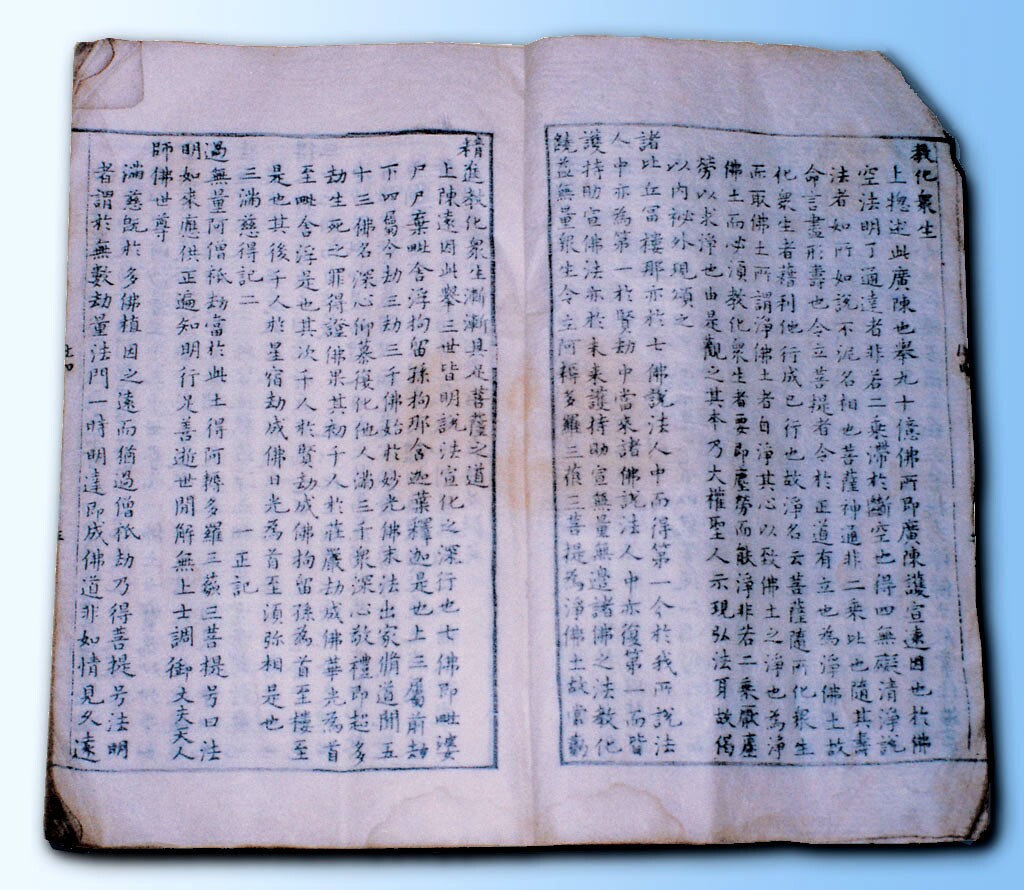 教化衆生
上摠定此廣陳也舉九十億佛所即廣陳護宣遠因也於佛
空法明了通達者非若二乘滯於斷空也得四無礙清淨說
法者如所如說不泥名相也菩薩神通非二乘比也隨其壽
命言盡形壽也令立菩提者令於正道有立也為淨佛土故
化衆生者藉利他行成已行也故淨名云菩薩隨所化衆生
而取佛土所謂淨佛土者自淨其心以致佛土之淨也為淨
佛土而必須教化衆生者要即塵勞而能淨非若二乘厭塵
勞以求淨也由是觀之其本乃大權聖人示現弘法耳故偈
以內袐外現頌之
諸比丘冨樓那亦於七佛說法人中而得第一今於我所說法
人中亦為第一於賢劫中當來諸佛說法人中亦復第一而皆
護持助宣佛法亦於未来護持助宣無量無邊諸佛之法教化
饒益無量衆生令立阿耨多羅三藐三菩提為淨佛土故常勤
精進教化衆生漸漸具足菩薩之道
上陳遠因此舉三世皆明說法宣化之深行也七佛即毗婆
尸尸棄毗舍浮拘留孫拘那舍迦葉釋迦是也上三屬前劫
下四屬今劫三劫三千佛始於妙光佛末法出家脩道聞五
十三佛名深心仰慕復化他人滿三千衆深心敬禮即超多
劫生死之罪得證佛果其初千人於莊嚴劫成佛華光為首
至毗舍浮是也其次千人於賢劫成佛拘留孫為首至樓至
是也其後千人於星宿劫成佛日光為首至須弥相是也
三滿慈得記二　一正記
過無量阿僧祇劫當於此土得阿耨多羅三藐三菩提号曰法
明如來應供正遍知明行足善逝世間解無上士調御丈夫天人
師佛世尊
滿慈既於多佛植因之遠而猶過僧祇劫乃得菩提号法明
者謂於無數劫量法門一時明達即成佛道非如情見久遠